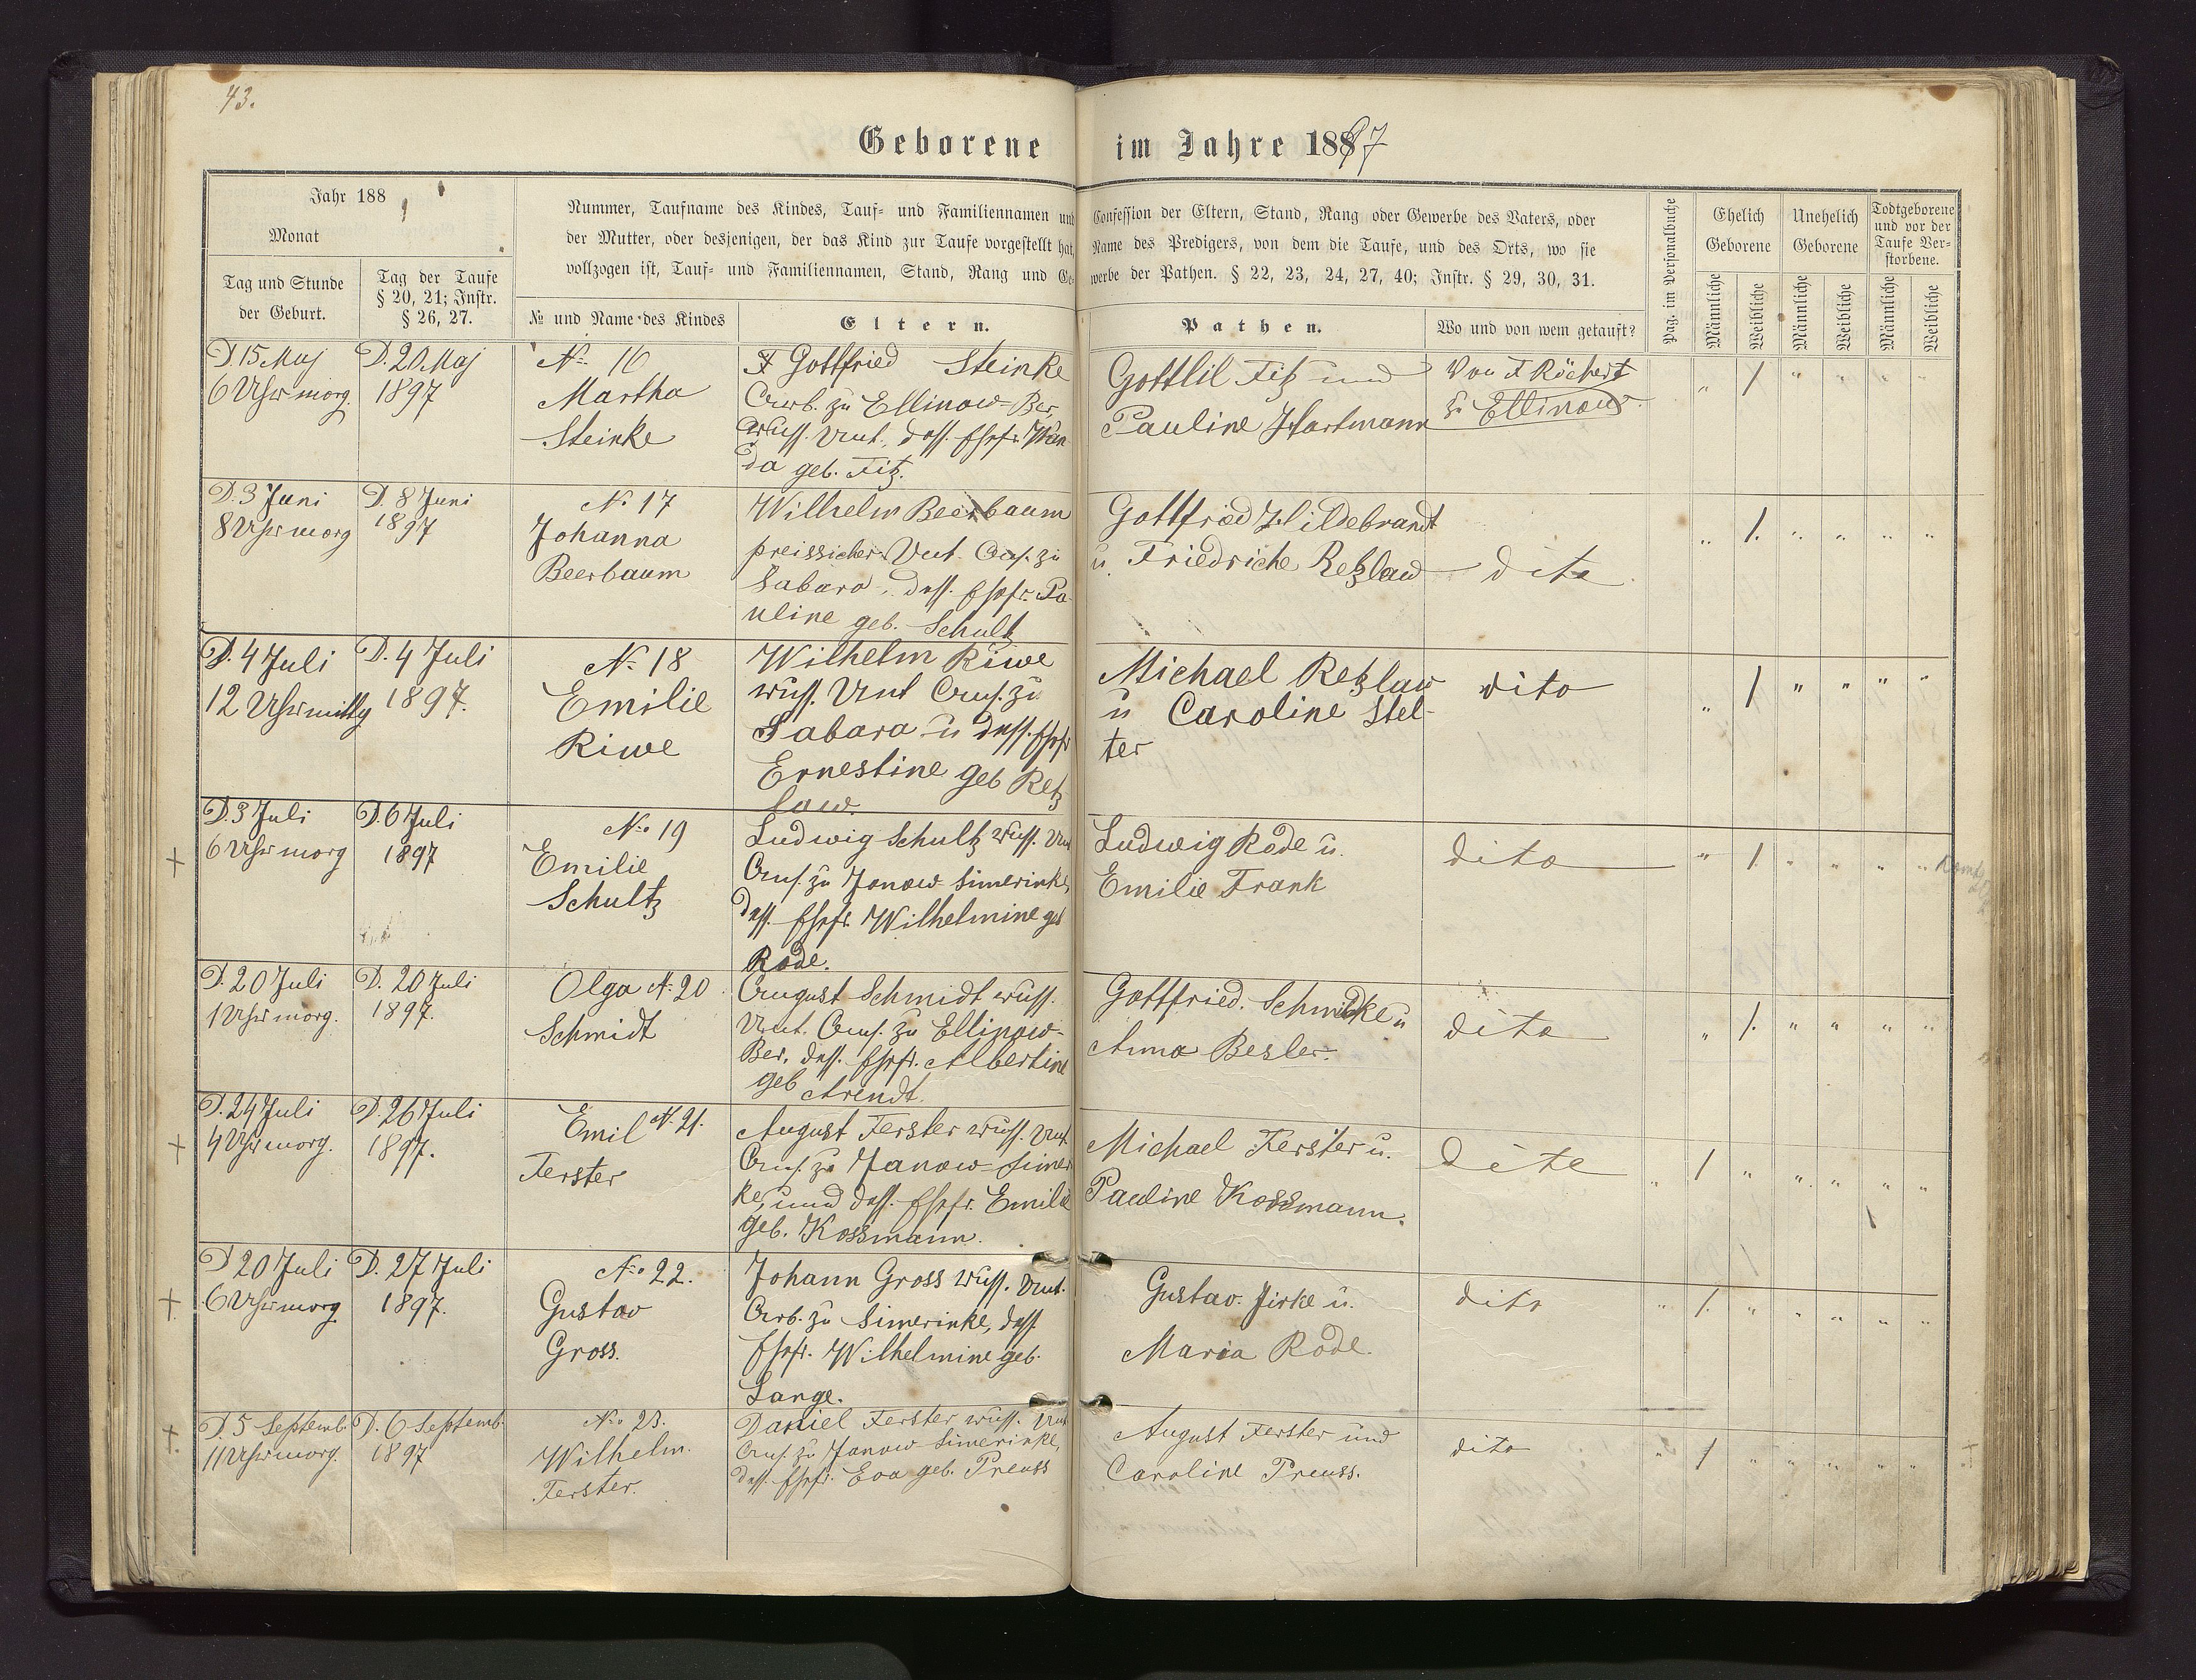 43.
Geborene im Jahre 1897
Jahr 188
Monat
Tag und Stunde
der Geburt.
Tag der Taufe
§ 20, 21; Instr.
§ 26, 27.
Nummer, Taufname des Kindes, Tauf- und Familiennamen und
der Mutter, oder desjenigen, der das Kind zur Taufe vorgestellt hat,
vollzogen ist, Tauf- und Familiennamen, Stand, Rang und Ge-
№ und Name des Kindes
Eltern.
Confession der Eltern, Stand, Rang oder Gewerbe des Vaters, oder
Name des Predigers, von dem die Taufe, und des Orts, wo sie
werbe der Pathen. § 22, 23, 24, 27, 40; Instr. § 29, 30, 31.
Pathen.
Wo und von wem getauft?
Pag. im Personalbuche
Ehelich
Geborene
Unehelich
Geborene
Todtgeborene
und vor der
Taufe Ver-
storbene.
Männliche
Weibliche
Männliche
Weibliche
Männliche
Weibliche
D. 15 Maj
6 Uhr morg.
D. 20 Maj
1897
No 16
Martha
Steinke
F Gottfried Steinke
zu Ellinow-Ber,
russ. Unt., dess. Ehefr. Wan
da geb. Fitz.
Gottlil Fitz und
Pauline Hartmann
Von F Röchert
zu Ellinow.
" / " " " "
D. 3 Juni
8 Uhr morg
D. 8 Juni
1897
No 17
Johanna
Beerbaum
Wilhelm Beerbaum
preissicher Unt. Ans. zu
Sabara, dess. Ehefr. Pa-
uline geb. Schultz
Gottfried Hildebrandt
u. Friedriche Retzlaw
dito
" /. " " " "
D. 4 Juli
12 Uhr mittg
D. 4 Juli
1897.
No 18
Emilie
Riwe
Wilhelm Riwe
russ. Unt Ans. zu
Sabara u dess. Ehefr
Ernestine geb Retz
law.
Michael Retzlaw
u Caroline Stel-
ter
dito
" / " " " "
+
D. 3 Juli
6 Uhr morg
D. 6 Juli
1897
No 19
Emilie
Schultz
Ludwig Schultz russ. Unt
Ans. zu Janow Simerinke,
dess. Ehefr. Wilhelmine geb
Rode.
Ludwig Rode u.
Emilie Frank
dito
" / " " " "
D. 20 Juli
1 Uhr morg.
D. 20 Juli
1897.
Olga No 20
Schmidt
August Schmidt russ.
Unt. Ans. zu Ellinow-
Ber. dess. Ehefr. Albertine
geb Arendt.
Gottfried. Schmidke u
Anna Besler.
dito
" /. " " " "
+
D. 24 Juli
4 Uhr morg.
D. 26 Juli
1897.
Emil No 21.
Ferster
August Ferster russ. Unt.
Ans. zu Janow-Simer
ke, und dess. Ehefr. Emilie
geb. Kossmann.
Michael Ferster u.
Pauline Kossmann.
dito
" / " " " " "
+
D 20 Juli
6 Uhr morg
D. 27 Juli
1897.
No 22.
Gustav
Gross.
Johann Gross russ. Unt.
Arb. zu Simerinke, dess
Ehefr. Wilhelmine geb.
Lange.
Gustav. Jirke u.
Maria Rode.
dito
" /. " " " " "
+.
D. 5 Septemb.
11 Uhr morg.
D. 6 Septemb.
1897
No 23.
Wilhelm.
Ferster.
Daniel Ferster russ. Unt
Ans. zu Janow Simerinke,
dess. Ehefr. Eva geb. Preuss
August Ferster und
Caroline Preuss.
dito
" / " " " " "